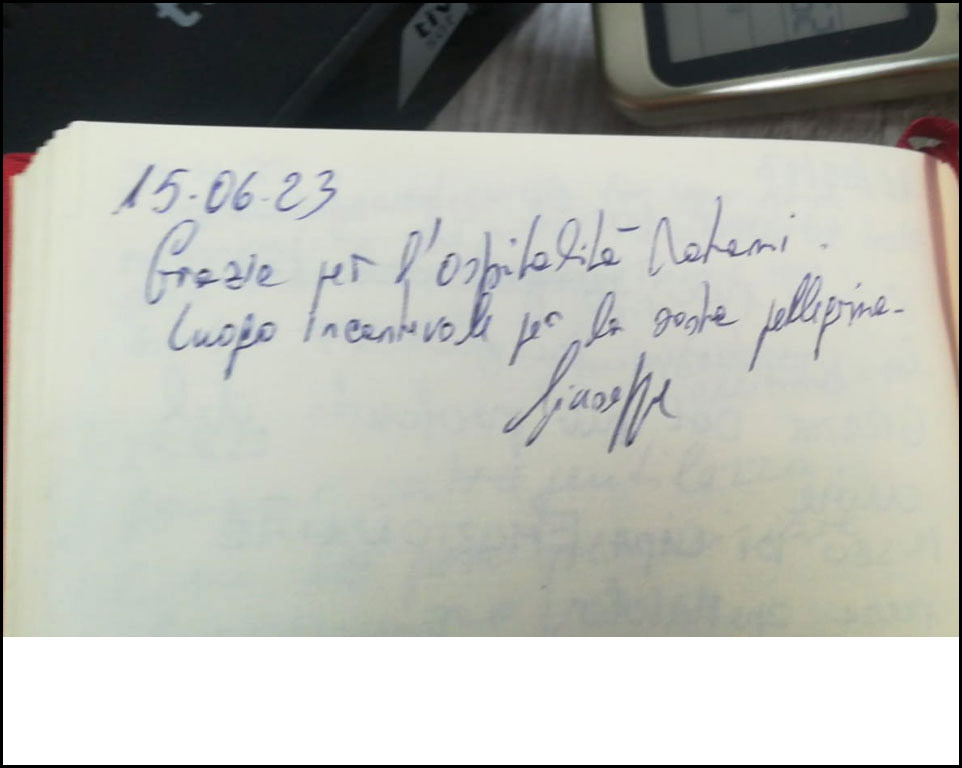 15-06-23
Grazie per l'ospitalità
Luogo incantevole per la sosta pellegrina.
Giuseppe